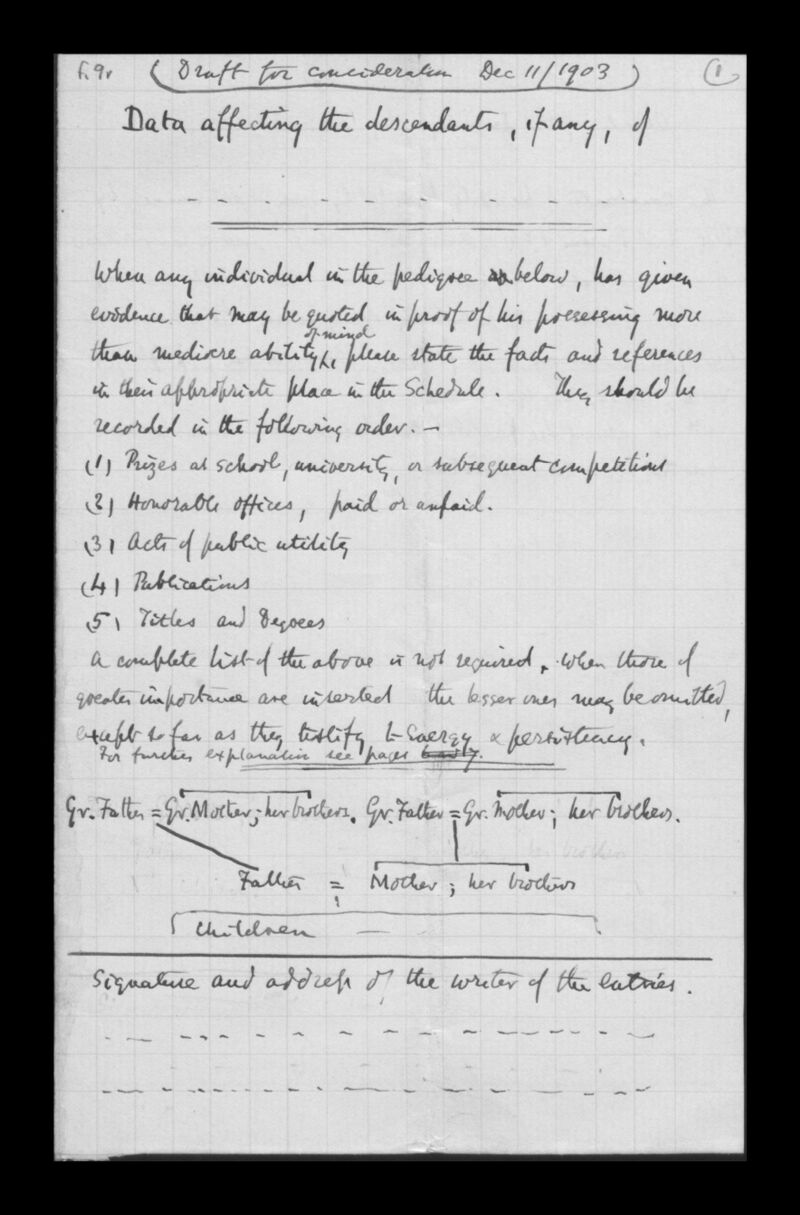 f. 9r (Draft for consideration Dec 11/1903) (1)
Data affecting the descendants, if any, of
When any individual in the pedigree below, has given
evidence that may be quoted in proof of his possessing more
of mind
than mediocre ability, please state the facts and references
in their appropriate place in the Schedule. They should be
recorded in the following order. —
(1) Prizes at school, university, or subsequent competitions
(2) Honorable offices, paid or unpaid.
(3) Acts of public utility
(4) Publications
(5) Titles and Degrees
A complete list of the above is not required. When those of
greater importance are inserted the lesser ones may be omitted,
except so far as they testify to Energy & persistency.
For further explanation see pages
Gr. Father = Gr. Mother; her brothers. Gr. Father = Gr. Mother; her brothers.
Father = Mother; her brothers
Children —
Signature and address of the writer of the entries.